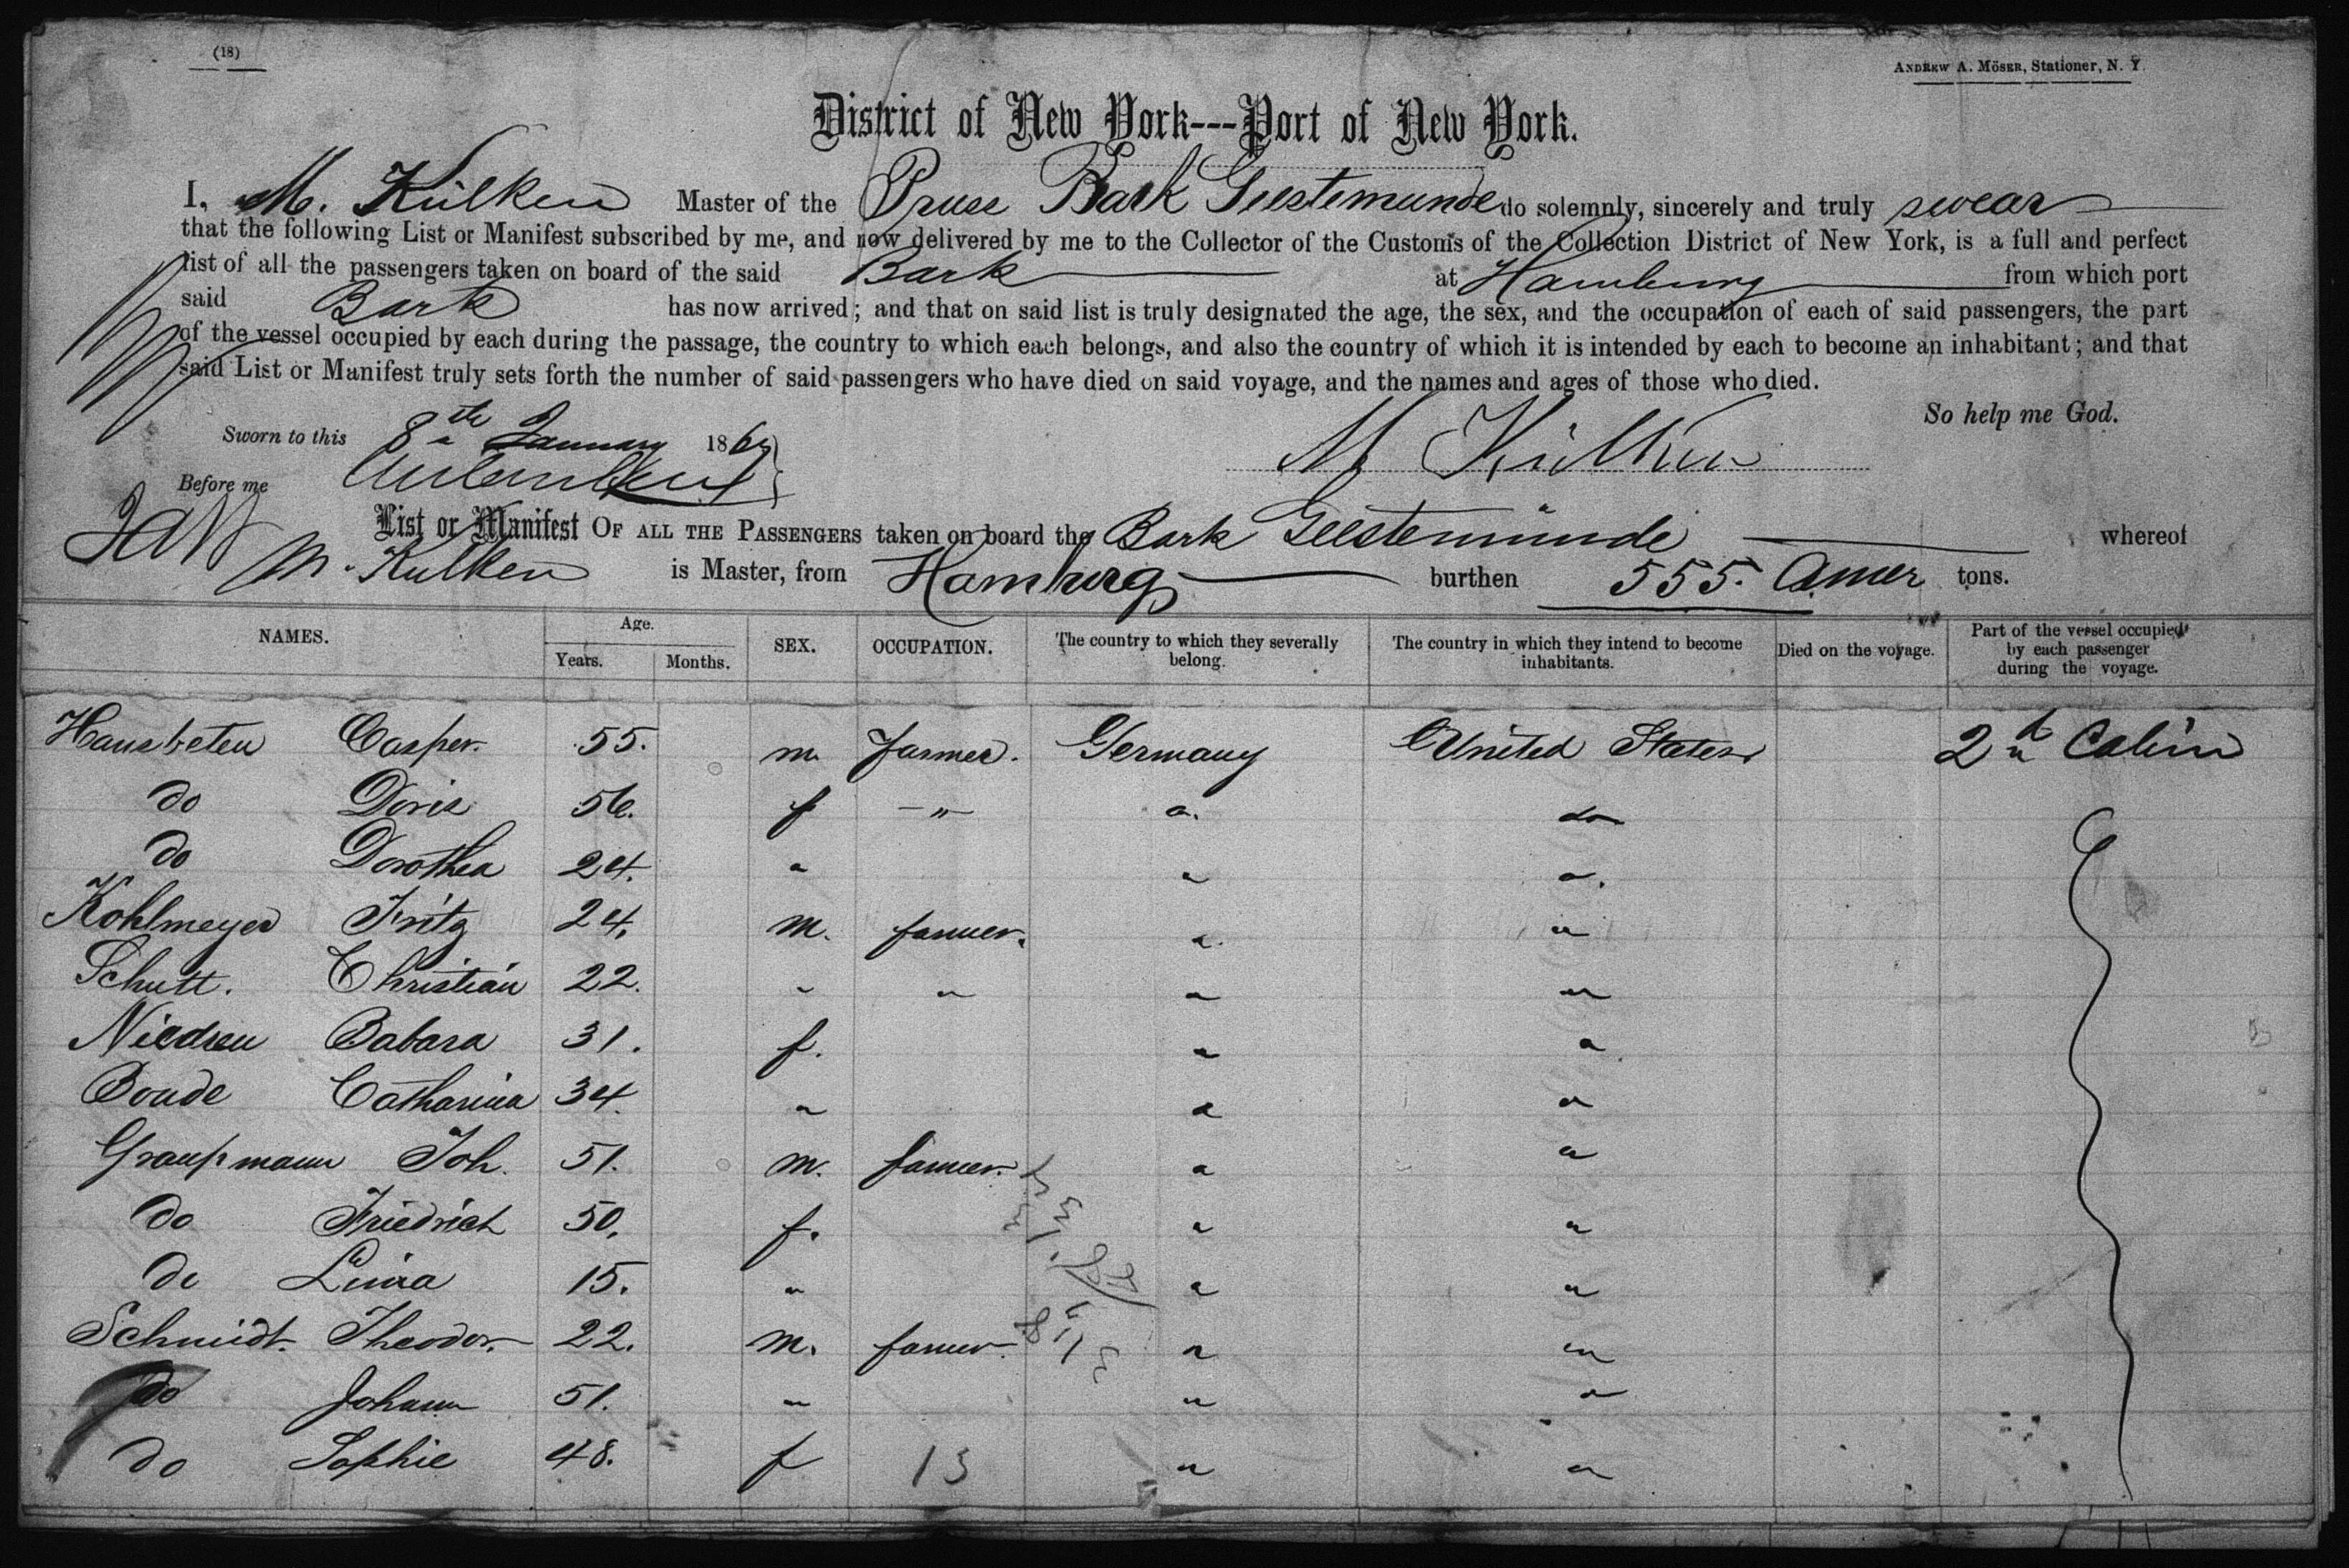 (18)
ANDREW A. MÖSER, Stationer, N. Y.
District of New York---Port of New York.
I, M. Külken Master of the Pruss Bark Geestemunde do solemnly, sincerely and truly swear
that the following List or Manifest subscribed by me, and now delivered by me to the Collector of the Customs of the Collection District of New York, is a full and perfect
list of all the passengers taken on board of the said Bark at Hamburg from which port
said Bark has now arrived; and that on said list is truly designated the age, the sex, and the occupation of each of said passengers, the part
of the vessel occupied by each during the passage, the country to which each belongs, and also the country of which it is intended by each to become an inhabitant; and that
said List or Manifest truly sets forth the number of said passengers who have died on said voyage, and the names and ages of those who died.
So help me God.
Sworn to this 8th January 186
M Külken
Before me
List or Manifest OF ALL THE PASSENGERS taken on board the Bark Geestemünde whereof
M. Kulken is Master, from Hamburg burthen 555. Amer tons.
NAMES. Age. Years. Months. SEX. OCCUPATION. The country to which they severally belong. The country in which they intend to become inhabitants. Died on the voyage. Part of the vessel occupied by each passenger during the voyage.
Casper. 55. m. farmer. Germany United States 2d Cabin
do Doris 56. f " " do
do Dorothea 24. " " "
Kohlmeyer Fritz 24. m. farmer. " "
Schutt. Christian 22. " " " "
Babara 31. f. " "
Catharina 34. " " "
Graupmann Joh. 51. m. farmer. " "
do Friedrich 50. f. " "
do 15. " " "
Schmidt. Theodor. 22. m. farmer. " "
do Johann 51. " " "
do Sophie 48. f 13 " "